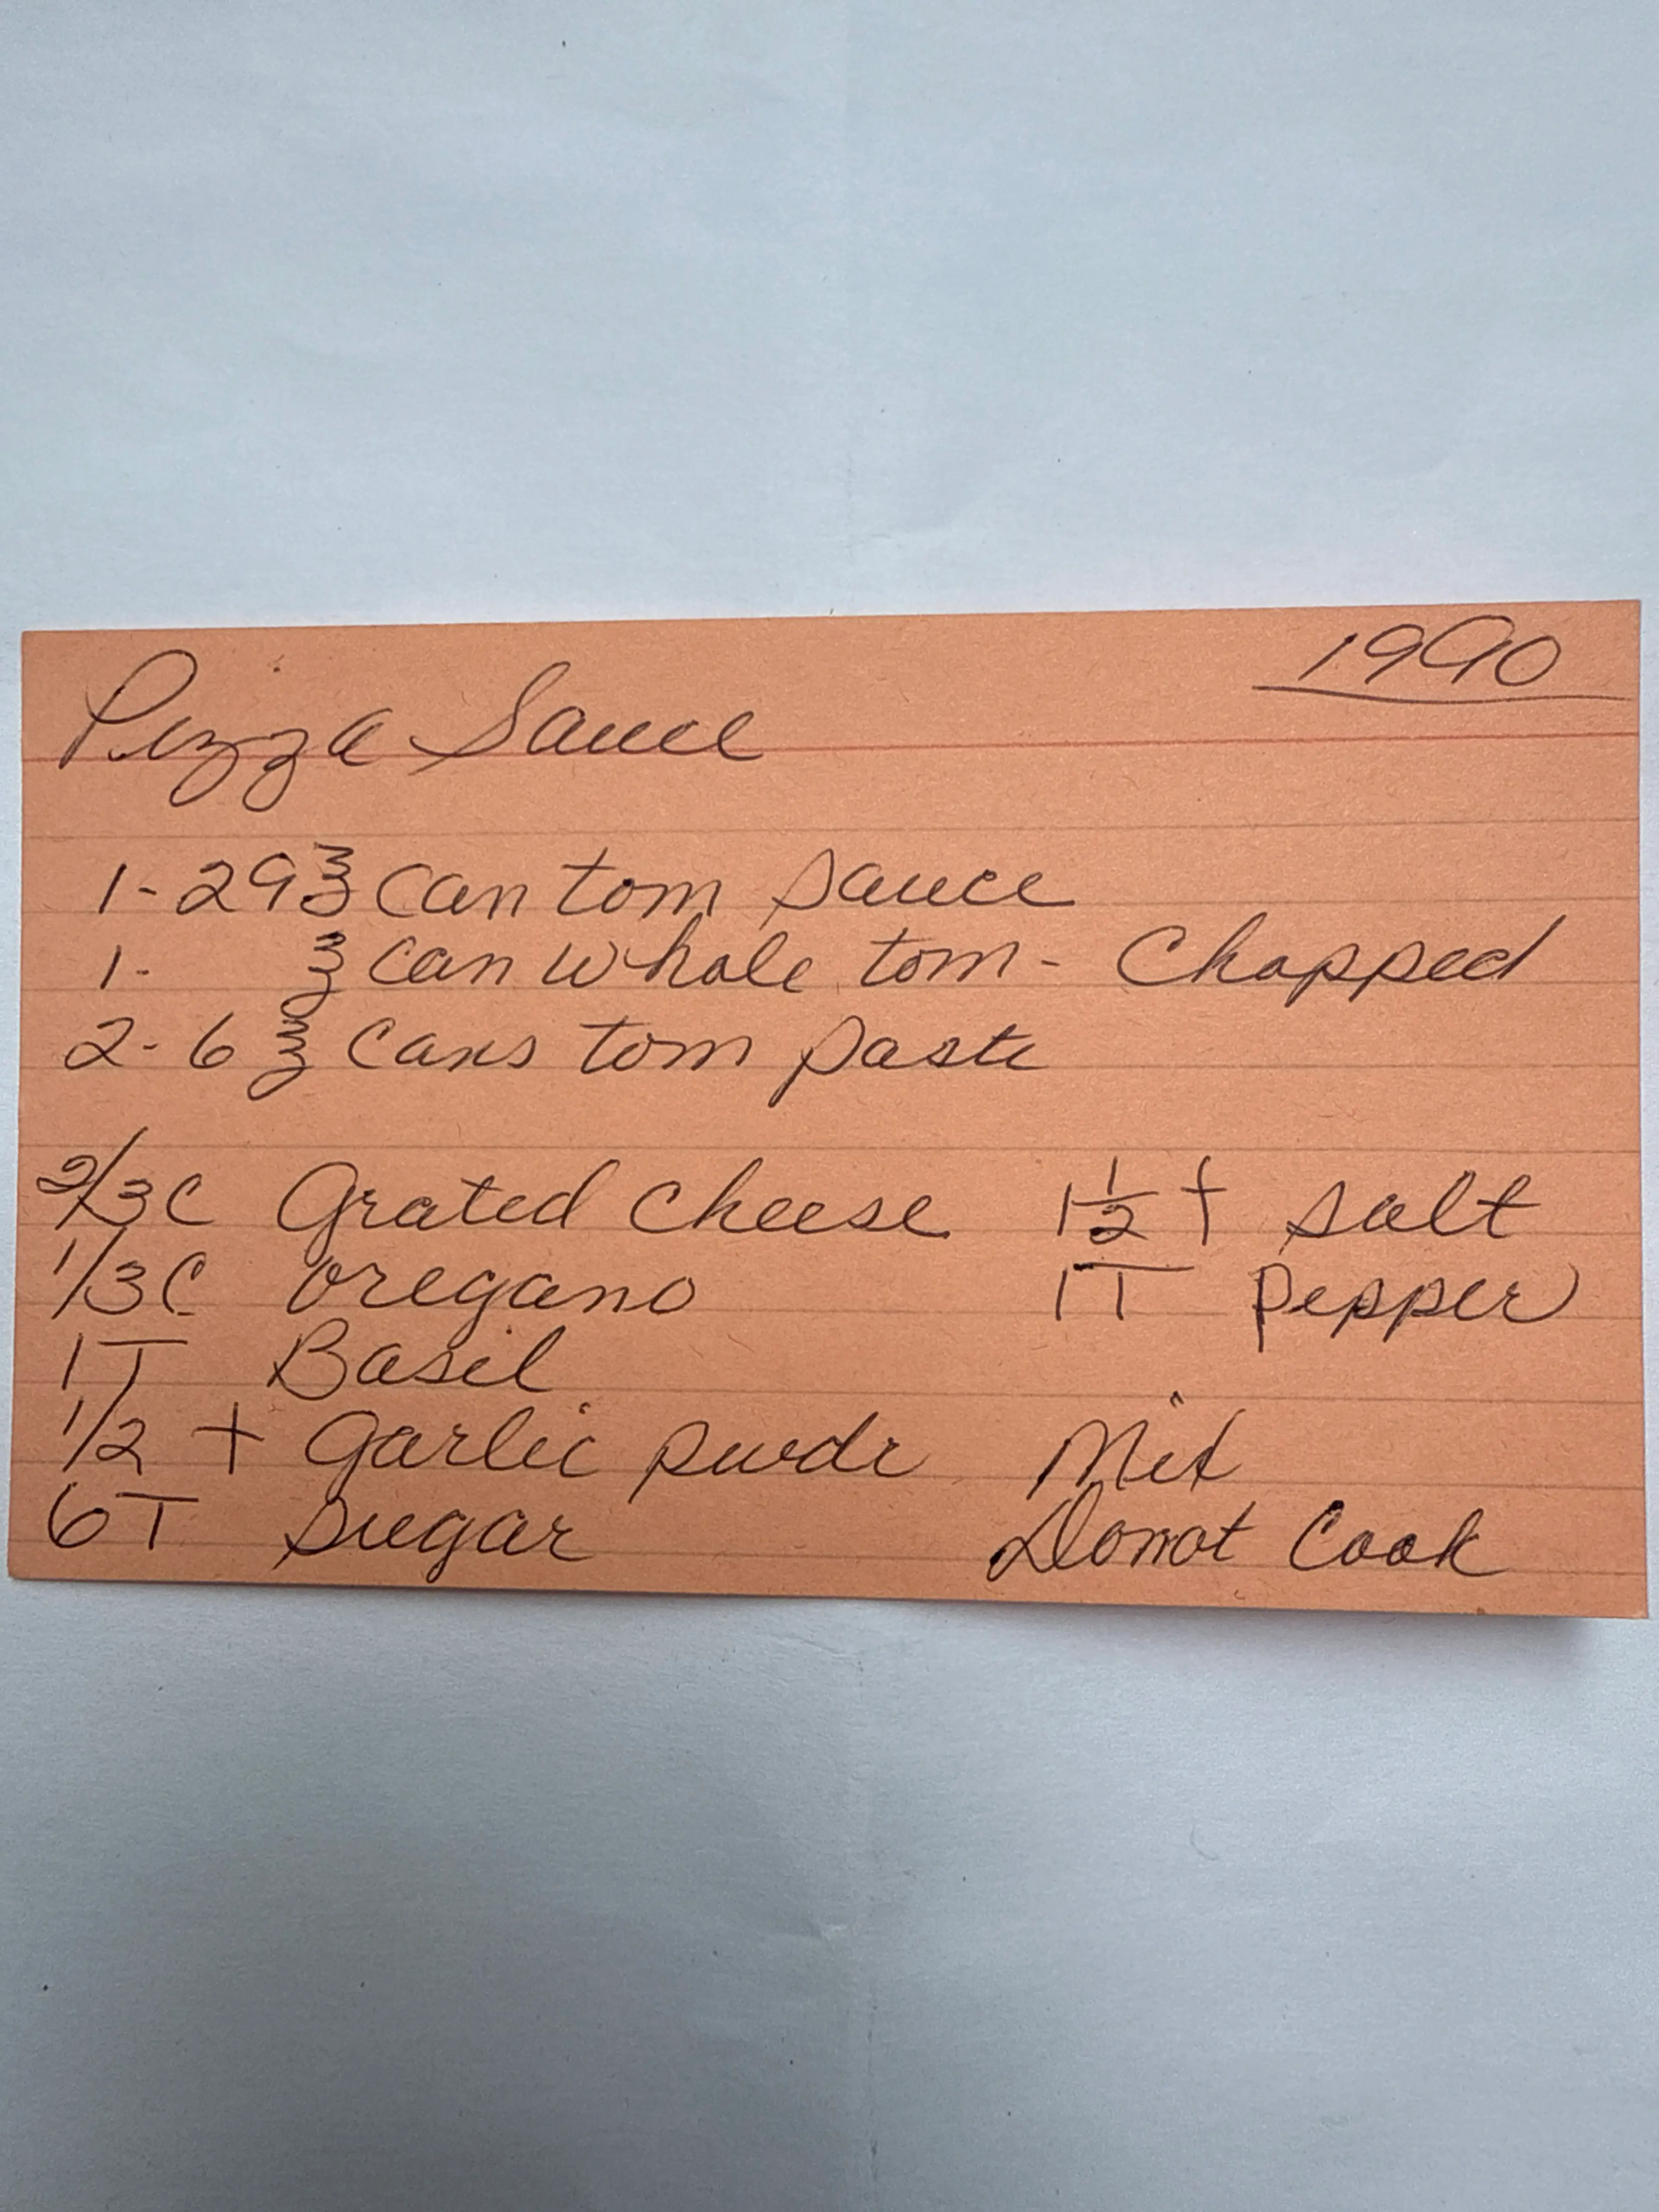 1990
Pizza Sauce
1-29 ℥ can tom sauce
1- ℥ can whole tom - Chopped
2-6 ℥ cans tom paste
2/3 C Grated Cheese
1/3 C oregano
1 T Basil
1/2 t Garlic pwdr
6 T Sugar
1 1/2 t salt
1 T Pepper
Mix
Donot Cook